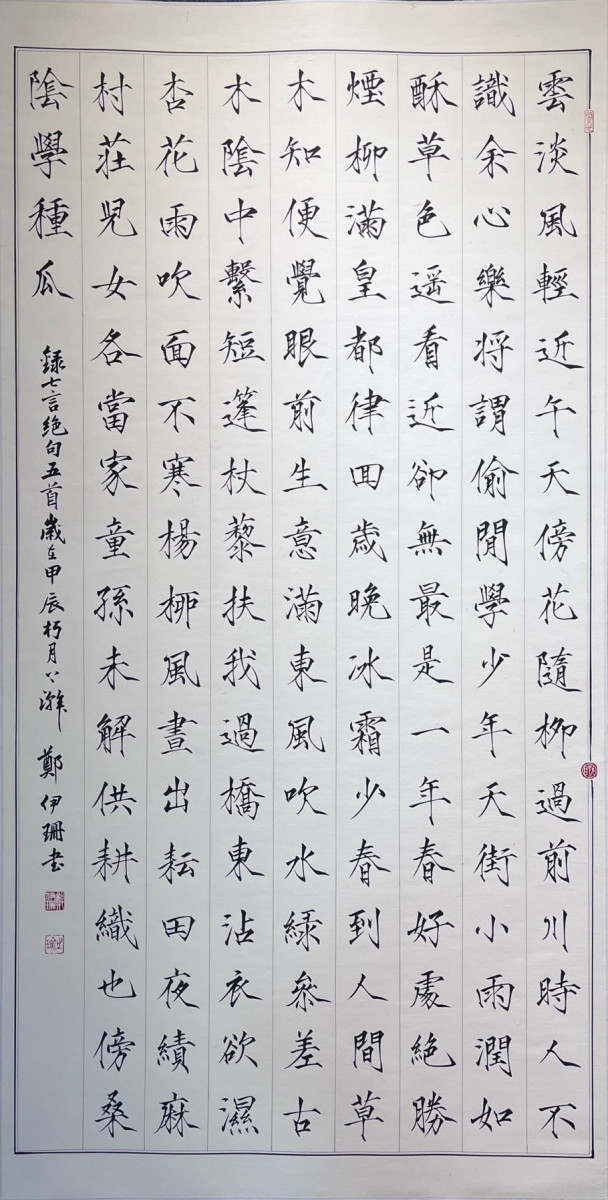 雲淡風輕近午天傍花隨柳過前川時人不
識余心樂將謂偷閒學少年天街小雨潤如
酥草色遥看近卻無最是一年春好處絕勝
煙柳滿皇都律回歲晚冰霜少春到人間草
木知便覺眼前生意滿東風吹水綠參差古
木陰中繫短篷杖藜扶我過橋東沾衣欲濕
杏花雨吹面不寒楊柳風晝出耘田夜績麻
村莊兒女各當家童孫未解供耕織也傍桑
陰學種瓜
録七言绝句五首歲在甲辰月 鄭伊珊书